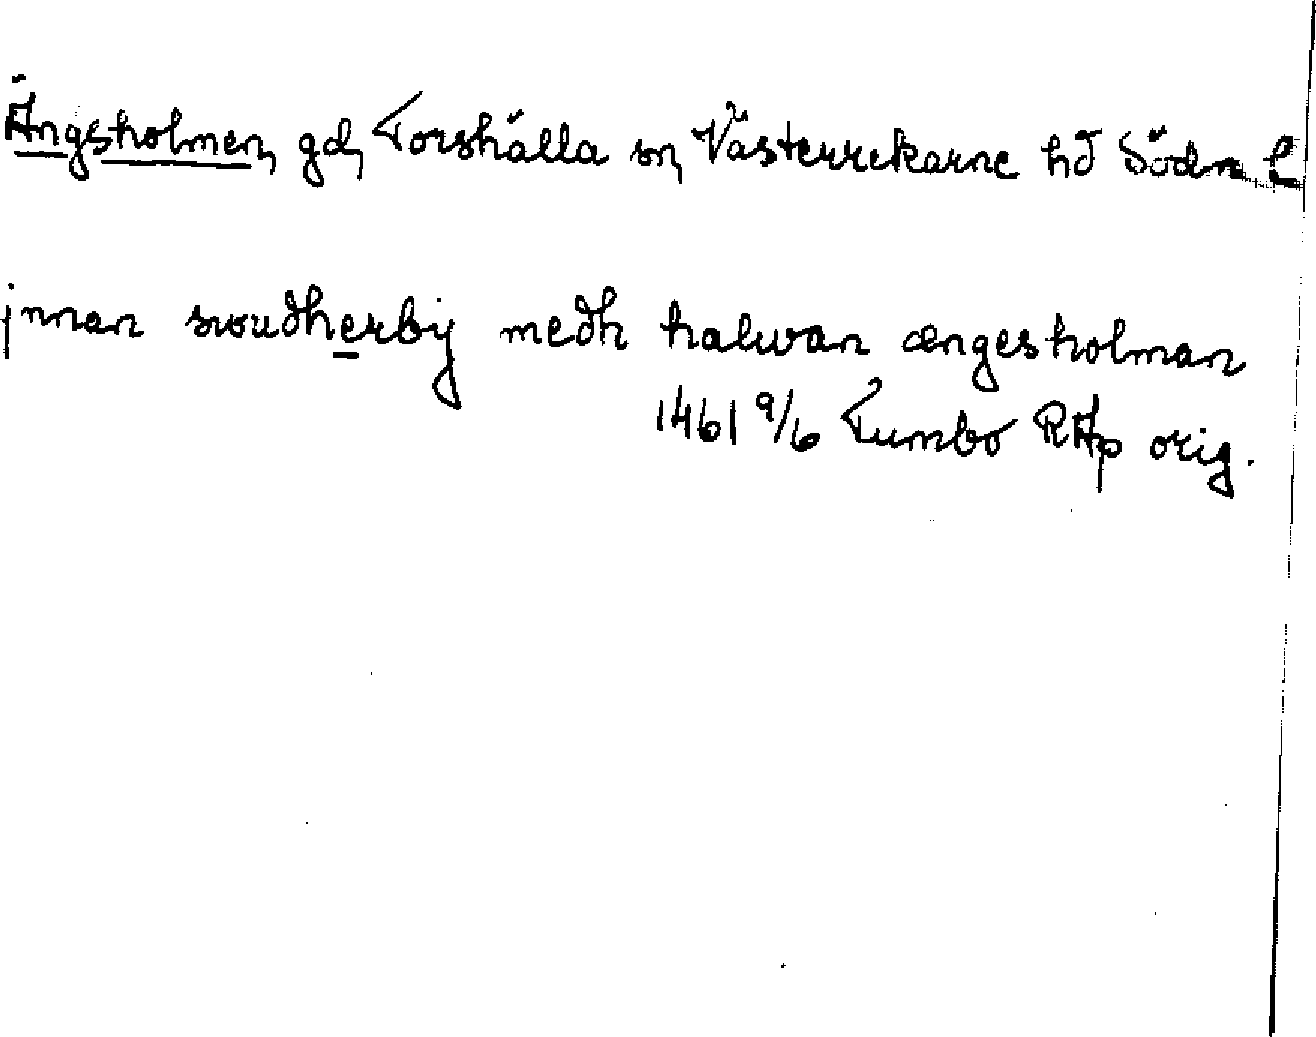 Ängsholmen, gd, Torshälla sn, Västerrekarne hd Södm l
jnnan swudherbij medh halwan ængesholman
1461 9/6 Tumbo RAp orig.